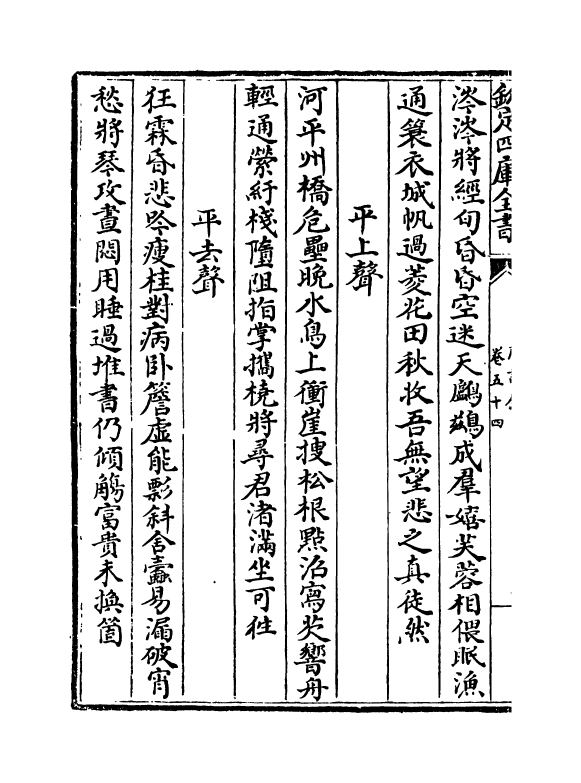 欽定四庫全書
卷五十四
涔涔將經旬昏昏空迷天鸕鷀成羣嬉芙蓉相偎眠漁
通簑衣城帆過菱花田秋收吾無望悲之真徒然
平上聲
河平州橋危壘晚水鳥上衝崖搜松根點沼寫芡響舟
輕通縈紆棧墮阻指掌攜橈將尋君渚滿坐可往
平去聲
狂霖昏悲吟瘦桂對病卧簷虛能彯斜舍蠹易漏破宵
愁將琴攻晝悶用睡過堆書仍傾觴富貴未換箇